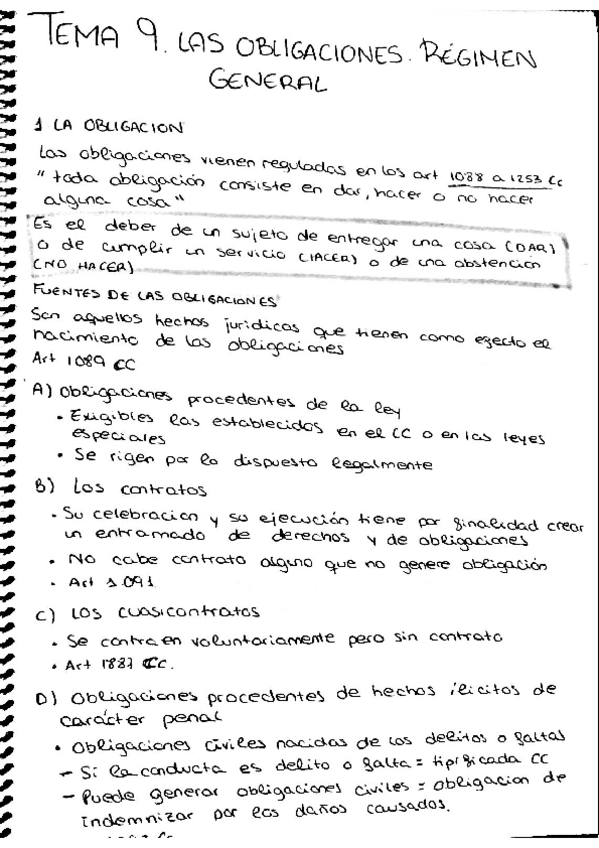 TEMA 9. LAS OBLIGACIONES. RÉGIMEN
GENERAL
1 LA OBLIGACION
Las obligaciones vienen reguladas en los art 1088 a 1253 Cc
" toda obligación consiste en dar, hacer o no hacer
alguna cosa"
Es el deber de un sujeto de entregar una cosa (DAR)
o de cumplir un servicio (HACER) o de una abstención
(NO HACER)
FUENTES DE LAS OBLIGACIONES
Son aquellos hechos jurídicos que tienen como efecto el
nacimiento de las obligaciones
Art 1089 CC
A) Obligaciones procedentes de la ley
• Exigibles las establecidos en el CC o en las leyes
especiales
• Se rigen por lo dispuesto legalmente
B) Los contratos
• Su celebración y su ejecución tiene por finalidad crear
un entramado de derechos y de obligaciones
• No cabe contrato alguno que no genere obligación
• Art 1.091
C) Los cuasicontratos
• Se contraen voluntariamente pero sin contrato
• Art 1887 Cc.
D) Obligaciones procedentes de hechos ilícitos de
carácter penal
• Obligaciones civiles nacidas de los delitos o faltas
– Si la conducta es delito o falta = tipificada CC
– Puede generar obligaciones civiles = obligacion de
indemnizar por los daños causados.